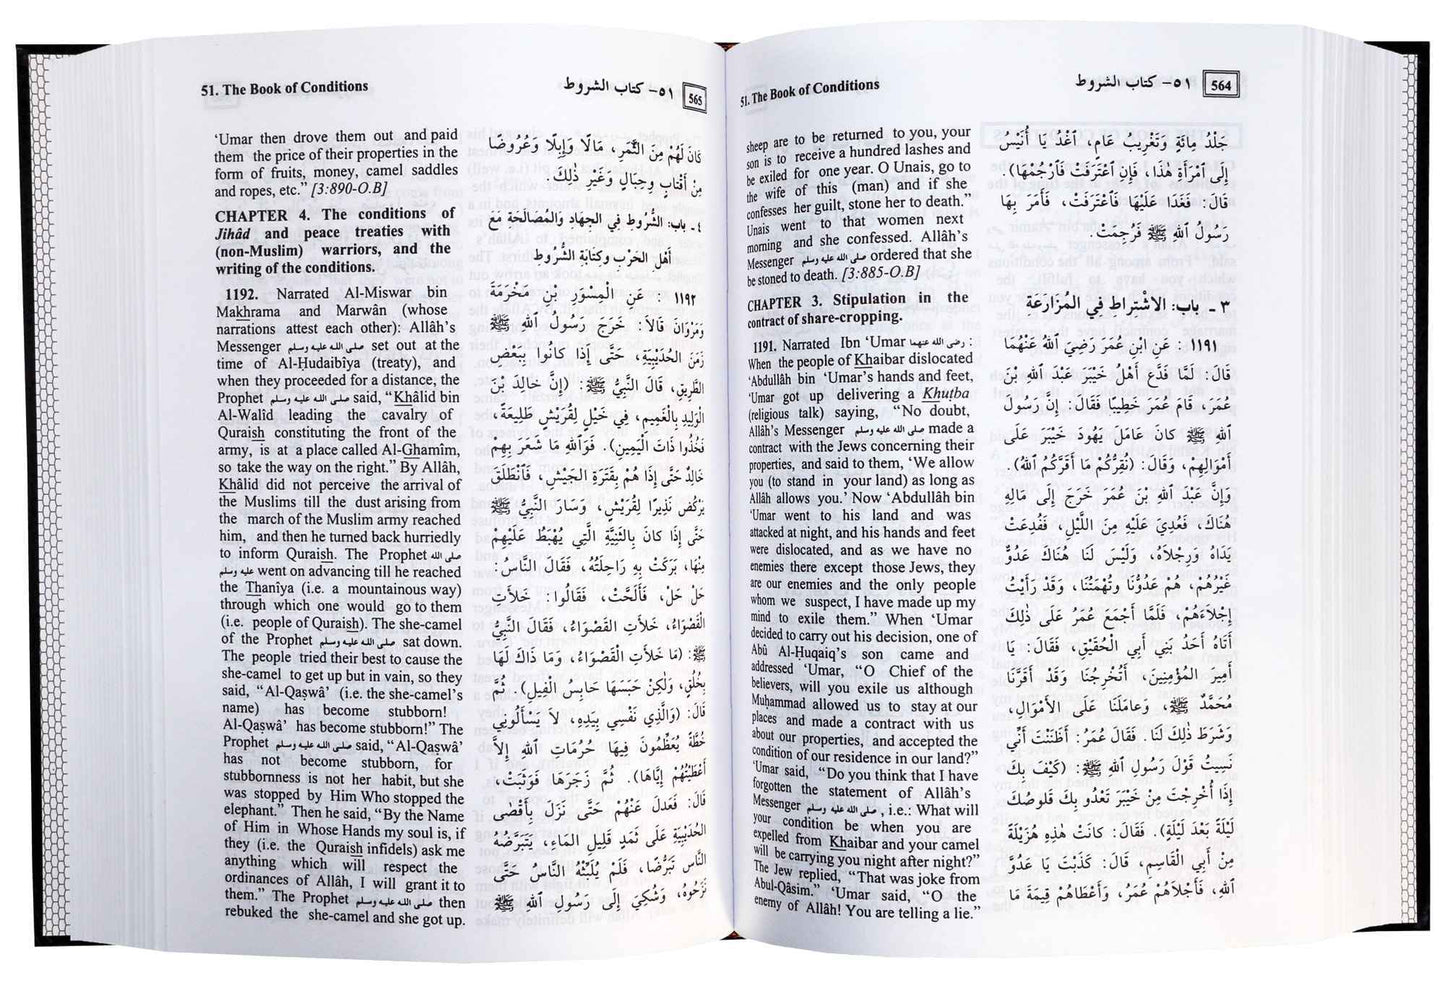 51. The Book of Conditions
٥١- كتاب الشروط
564
sheep are to be returned to you, your
son is to receive a hundred lashes and
be exiled for one year. O Unais, go to
the wife of this (man) and if she
confesses her guilt, stone her to death.”
Unais went to that women next
morning and she confessed. Allâh’s
Messenger صلى الله عليه وسلم ordered that she
be stoned to death. [3:885-O.B]
CHAPTER 3. Stipulation in the
contract of share-cropping.
1191. Narrated Ibn ‘Umar رضي الله عنهما :
When the people of Khaibar dislocated
‘Abdullâh bin ‘Umar’s hands and feet,
‘Umar got up delivering a Khuṭba
(religious talk) saying, “No doubt,
Allâh’s Messenger صلى الله عليه وسلم made a
contract with the Jews concerning their
properties, and said to them, ‘We allow
you (to stand in your land) as long as
Allâh allows you.’ Now ‘Abdullâh bin
‘Umar went to his land and was
attacked at night, and his hands and feet
were dislocated, and as we have no
enemies there except those Jews, they
are our enemies and the only people
whom we suspect, I have made up my
mind to exile them.” When ‘Umar
decided to carry out his decision, one of
Abû Al-Ḥuqaiq’s son came and
addressed ‘Umar, “O Chief of the
believers, will you exile us although
Muḥammad allowed us to stay at our
places and made a contract with us
about our properties, and accepted the
condition of our residence in our land?”
‘Umar said, “Do you think that I have
forgotten the statement of Allâh’s
Messenger صلى الله عليه وسلم , i.e.: What will
your condition be when you are
expelled from Khaibar and your camel
will be carrying you night after night?”
The Jew replied, “That was joke from
Abul-Qâsim.” ‘Umar said, “O the
enemy of Allâh! You are telling a lie.”
جَلْدُ مِائَةٍ وَتَغْرِيبُ عَامٍ، اغْدُ يَا أُنَيْسُ
إِلَى امْرَأَةِ هَذَا، فَإِنِ اعْتَرَفَتْ فَارْجُمْهَا).
قَالَ: فَغَدَا عَلَيْهَا فَاعْتَرَفَتْ، فَأَمَرَ بِهَا
رَسُولُ اللهِ ﷺ فَرُجِمَتْ.
٣ ـ باب: الاشْتِراطِ فِي المُزَارَعَةِ
١١٩١ : عَنِ ابْنِ عُمَرَ رَضِيَ اللهُ عَنْهُمَا
قَالَ: لَمَّا فَدَعَ أَهْلُ خَيْبَرَ عَبْدَ اللهِ بْنَ
عُمَرَ، قَامَ عُمَرُ خَطِيبًا فَقَالَ: إِنَّ رَسُولَ
اللهِ ﷺ كانَ عَامَلَ يَهُودَ خَيْبَرَ عَلَى
أَمْوَالِهِمْ، وَقَالَ: (نُقِرُّكُمْ مَا أَقَرَّكُمُ اللهُ).
وَإِنَّ عَبْدَ اللهِ بْنَ عُمَرَ خَرَجَ إِلَى مَالِهِ
هُنَاكَ، فَعُدِيَ عَلَيْهِ مِنَ اللَّيْلِ، فَفُدِعَتْ
يَدَاهُ وَرِجْلاَهُ، وَلَيْسَ لَنَا هُنَاكَ عَدُوٌّ
غَيْرُهُمْ، هُمْ عَدُوُّنَا وَتُهْمَتُنَا، وَقَدْ رَأَيْتُ
إِجْلاَءَهُمْ، فَلَمَّا أَجْمَعَ عُمَرُ عَلَى ذٰلِكَ
أَتَاهُ أَحَدُ بَنِي أَبِي الْحُقَيْقِ، فَقَالَ: يَا
أَمِيرَ الْمُؤْمِنِينَ، أَتُخْرِجُنَا وَقَدْ أَقَرَّنَا
مُحَمَّدٌ ﷺ، وَعامَلَنَا عَلَى الأَمْوَالِ،
وَشَرَطَ ذٰلِكَ لَنَا. فَقَالَ عُمَرُ: أَظَنَنْتَ أَنِّي
نَسِيتُ قَوْلَ رَسُولِ اللهِ ﷺ: (كَيْفَ بِكَ
إِذَا أُخْرِجْتَ مِنْ خَيْبَرَ تَعْدُو بِكَ قَلوصُكَ
لَيْلَةً بَعْدَ لَيْلَةٍ). فَقَالَ: كانَتْ هٰذِهِ هُزَيْلَةً
مِنْ أَبِي القَاسِمِ، قَالَ: كَذَبْتَ يَا عَدُوَّ
اللهِ، فَأَجْلاَهُمْ عُمَرُ، وَأَعْطَاهُمْ قِيمَةَ مَا
51. The Book of Conditions
٥١- كتاب الشروط
565
‘Umar then drove them out and paid
them the price of their properties in the
form of fruits, money, camel saddles
and ropes, etc.” [3:890-O.B]
CHAPTER 4. The conditions of
Jihâd and peace treaties with
(non-Muslim) warriors, and the
writing of the conditions.
1192. Narrated Al-Miswar bin
Makhrama and Marwân (whose
narrations attest each other): Allâh’s
Messenger صلى الله عليه وسلم set out at the
time of Al-Ḥudaibîya (treaty), and
when they proceeded for a distance, the
Prophet صلى الله عليه وسلم said, “Khâlid bin
Al-Walîd leading the cavalry of
Quraish constituting the front of the
army, is at a place called Al-Ghamîm,
so take the way on the right.” By Allâh,
Khâlid did not perceive the arrival of
the Muslims till the dust arising from
the march of the Muslim army reached
him, and then he turned back hurriedly
to inform Quraish. The Prophet صلى الله
عليه وسلم went on advancing till he reached
the Thanîya (i.e. a mountainous way)
through which one would go to them
(i.e. people of Quraish). The she-camel
of the Prophet صلى الله عليه وسلم sat down.
The people tried their best to cause the
she-camel to get up but in vain, so they
said, “Al-Qaṣwâ’ (i.e. the she-camel’s
name) has become stubborn!
Al-Qaṣwâ’ has become stubborn!” The
Prophet صلى الله عليه وسلم said, “Al-Qaṣwâ’
has not become stubborn, for
stubbornness is not her habit, but she
was stopped by Him Who stopped the
elephant.” Then he said, “By the Name
of Him in Whose Hands my soul is, if
they (i.e. the Quraish infidels) ask me
anything which will respect the
ordinances of Allâh, I will grant it to
them.” The Prophet صلى الله عليه وسلم then
rebuked the she-camel and she got up.
كانَ لَهُمْ مِنَ الثَّمَرِ، مَالًا وَإِبِلًا وَعُرُوضًا
مِنْ أَقْتَابٍ وَحِبَالٍ وَغَيْرِ ذٰلِكَ.
٤ ـ باب: الشُّرُوطِ فِي الجِهَادِ وَالمُصَالَحَةِ مَعَ
أهْلِ الحَرْبِ وكتابةِ الشُّرُوطِ
١١٩٢ : عَنِ الْمِسْوَرِ بْنِ مَخْرَمَةَ
وَمَرْوَانَ قَالاَ: خَرَجَ رَسُولُ اللهِ ﷺ
زَمَنَ الحُدَيْبِيَةِ، حَتَّى إِذَا كانُوا بِبَعْضِ
الطَّرِيقِ، قَالَ النَّبِيُّ ﷺ: (إِنَّ خالِدَ بْنَ
الْوَلِيدِ بِالْغَمِيمِ، فِي خَيْلٍ لِقُرَيْشٍ طَلِيعَةً،
فَخُذُوا ذَاتَ الْيَمِينِ). فَوَاللهِ مَا شَعَرَ بِهِمْ
خالِدٌ حَتَّى إِذَا هُمْ بِقَتَرَةِ الجَيْشِ، فَانْطَلَقَ
يَرْكُضُ نَذِيرًا لِقُرَيْشٍ، وَسَارَ النَّبِيُّ ﷺ
حَتَّى إِذَا كانَ بِالثَّنِيَّةِ الَّتِي يُهْبَطُ عَلَيْهِمْ
مِنْهَا، بَرَكَتْ بِهِ رَاحِلَتُهُ، فَقَالَ النَّاسُ:
حَلْ حَلْ، فَأَلَحَّتْ، فَقَالُوا: خَلأَتِ
القَصْوَاءُ، خَلأَتِ القَصْوَاءُ، فَقَالَ النَّبِيُّ
ﷺ: (مَا خَلأَتِ القَصْوَاءُ، وَمَا ذَاكَ لَهَا
بِخُلُقٍ، وَلٰكِنْ حَبَسَهَا حابِسُ الْفِيلِ). ثُمَّ
قَالَ: (وَالَّذِي نَفْسِي بِيَدِهِ، لاَ يَسْأَلُونِي
خُطَّةً يُعَظِّمُونَ فِيهَا حُرُمَاتِ اللهِ إِلاَّ
أَعْطَيْتُهُمْ إِيَّاهَا). ثُمَّ زَجَرَهَا فَوَثَبَتْ،
قَالَ: فَعَدَلَ عَنْهُمْ حَتَّى نَزَلَ بِأَقْصَى
الحُدَيْبِيَةِ عَلَى ثَمَدٍ قَلِيلِ المَاءِ، يَتَبَرَّضُهُ
النَّاسُ تَبَرُّضًا، فَلَمْ يُلَبِّثْهُ النَّاسُ حَتَّى
نَزَحُوهُ، وَشُكِيَ إِلَى رَسُولِ اللهِ ﷺ